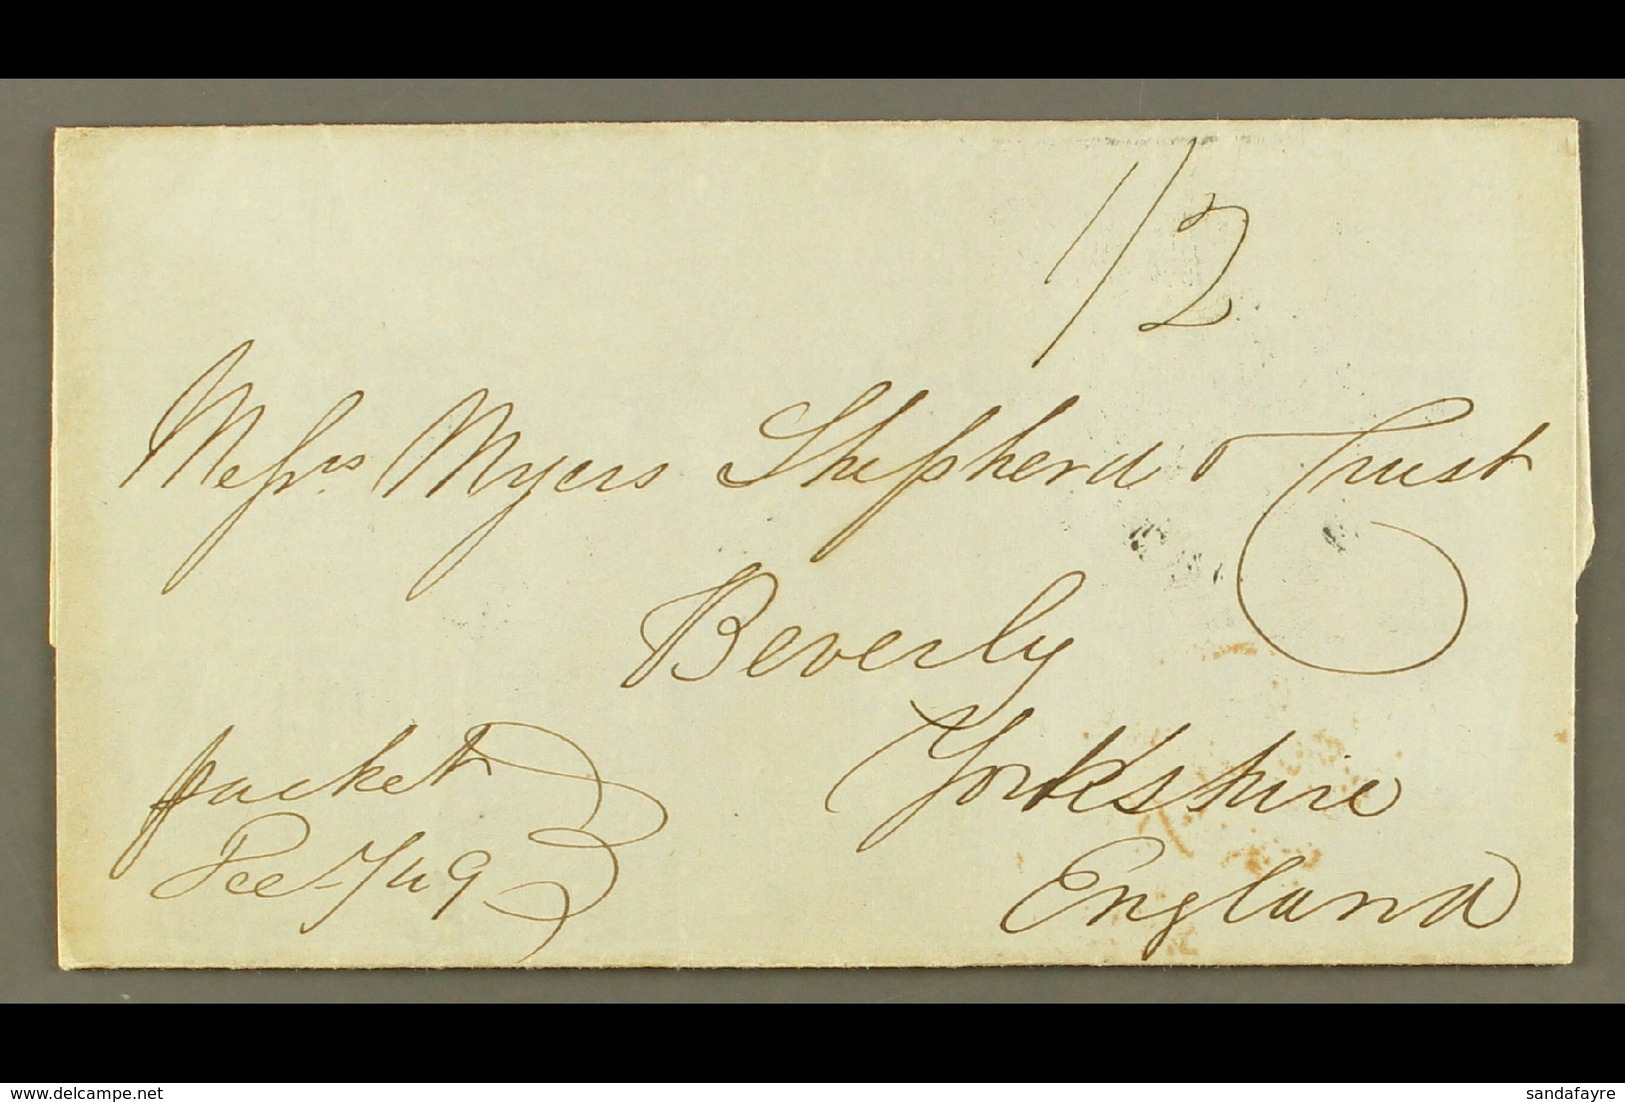 1/2
Messrs Myers Shepherd & Trust
Beverly
Yorkshire
England
packet
Dec 7/49
sandafayre